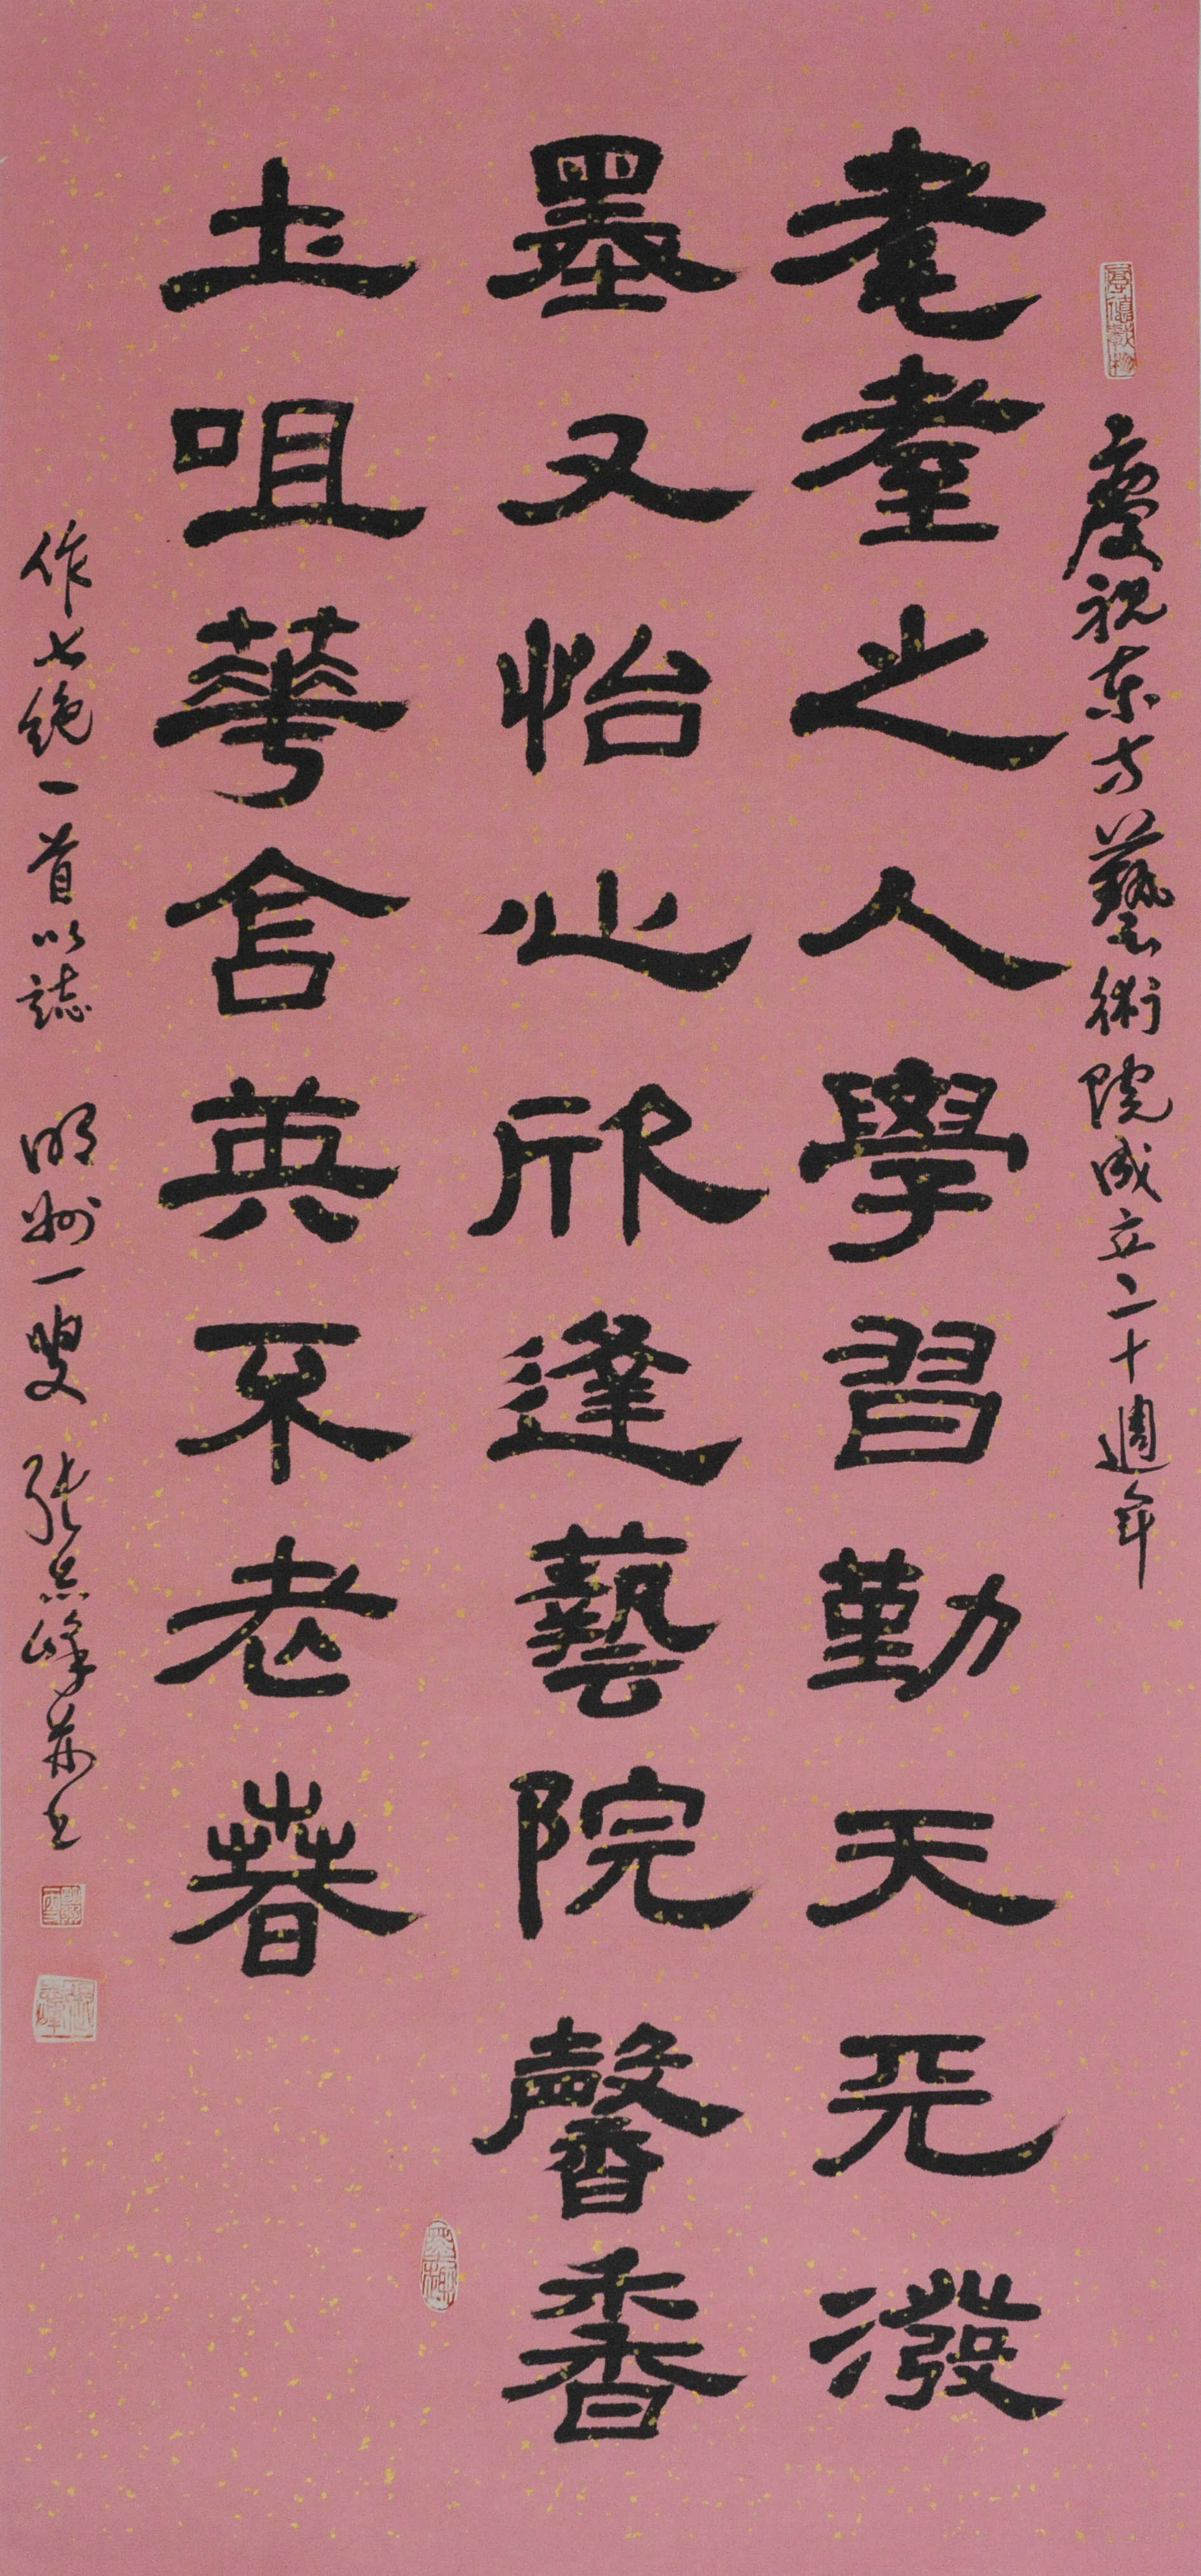 慶祝东方藝術院成立二十週年
耄耋之人學習勤天天潑
墨又怡心欣逢藝院馨香
土咀華含英不老春
作七絶一首以誌 明州一叟 张志峰并书